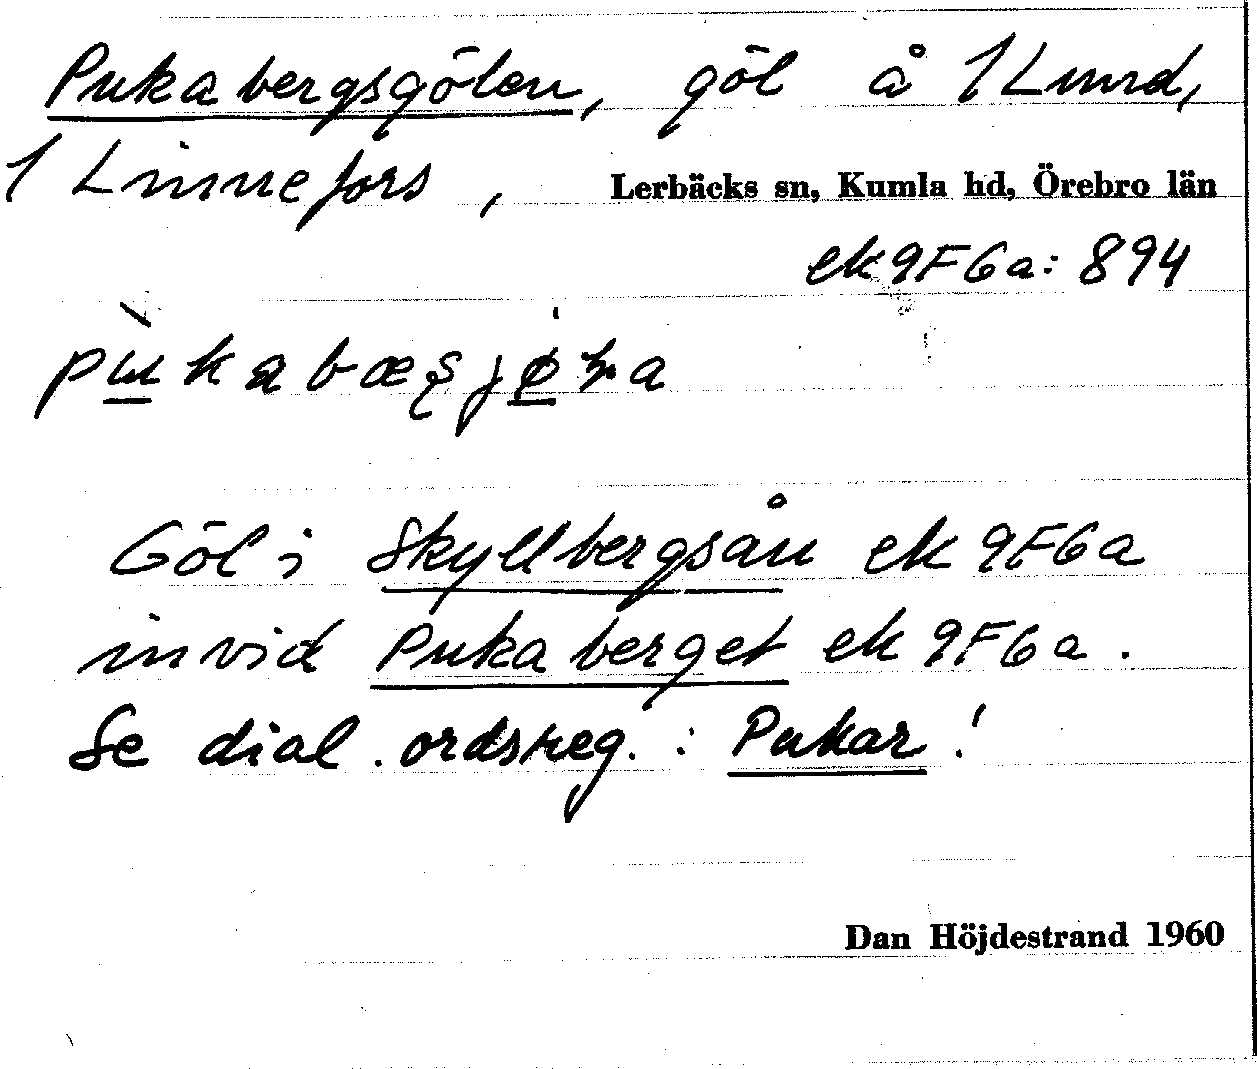 Pukabergsgölen, göl å 1 Lund,
1 Linnefors, Lerbäcks sn, Kumla hd, Örebro län
ek 9F6a: 894
Göl i Skyllbergsån ek 9F6a
invid Pukaberget ek 9F6a.
Se dial. ordsreg.: Pukar!
Dan Höjdestrand 1960